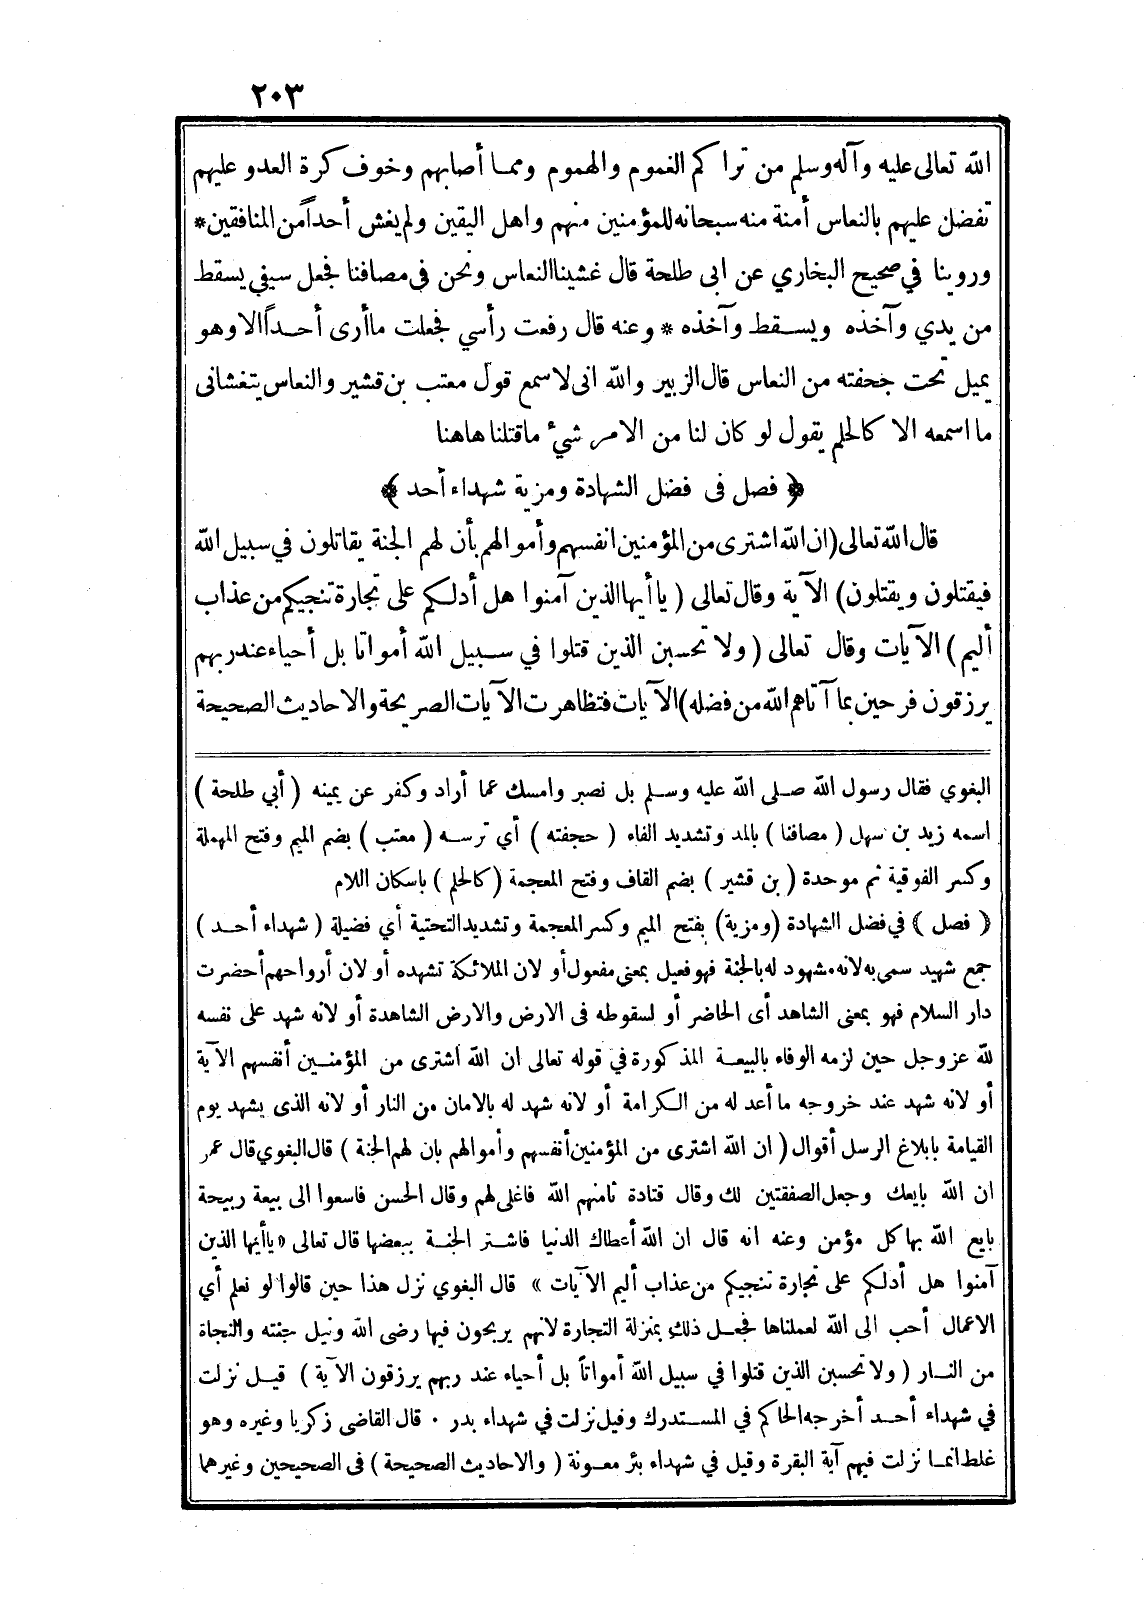 ٢٠٣
الله تعالى عليه وآله وسلم من تراكم الغموم والهموم ومما أصابهم وخوف كرة العدو عليهم
تفضل عليهم بالنعاس أمنة منه سبحانه للمؤمنين منهم واهل اليقين ولم يغش أحداً من المنافقين *
وروينا في صحيح البخاري عن ابى طلحة قال غشينا النعاس ونحن فى مصافنا فجعل سيفي يسقط
من يدي وآخذه ويسقط وآخذه * وعنه قال رفعت رأسي فجعلت ماأرى أحداً الا وهو
يميل تحت جحفته من النعاس قال الزبير والله انى لاسمع قول معتب بن قشير والنعاس يتغشانى
ما اسمعه الا كالحلم يقول لو كان لنا من الامر شيء ماقتلنا هاهنا
﴿ فصل فى فضل الشهادة ومزية شهداء أحد ﴾
قال الله تعالى (ان الله اشترى من المؤمنين انفسهم وأموالهم بأن لهم الجنة يقاتلون في سبيل الله
فيقتلون ويقتلون) الآية وقال تعالى ( ياأيها الذين آمنوا هل أدلكم على تجارة تنجيكم من عذاب
أليم ) الآيات وقال تعالى ( ولا تحسبن الذين قتلوا في سبيل الله أمواتا بل أحياء عند ربهم
يرزقون فرحين بما آتاهم الله من فضله) الآيات فتظاهرت الآيات الصريحة والاحاديث الصحيحة
البغوي فقال رسول الله صلى الله عليه وسلم بل نصبر وامسك عما أراد وكفر عن يمينه ( أبي طلحة )
اسمه زيد بن سهل ( مصافنا ) بالمد وتشديد الفاء ( حجفته ) أي ترسه ( معتب ) بضم الميم وفتح المهملة
وكسر الفوقية ثم موحدة ( بن قشير ) بضم القاف وفتح المعجمة ( كالحلم ) باسكان اللام
﴿ فصل ﴾ في فضل الشهادة (ومزية) بفتح الميم وكسر المعجمة وتشديد التحتية أي فضيلة ( شهداء أحد )
جمع شهيد سمى به لانه مشهود له بالجنة فهو فعيل بمعنى مفعول أو لان الملائكة تشهده أو لان أرواحهم أحضرت
دار السلام فهو بمعنى الشاهد أى الحاضر أو لسقوطه فى الارض والارض الشاهدة أو لانه شهد على نفسه
لله عز وجل حين لزمه الوفاء بالبيعة المذكورة في قوله تعالى ان الله اشترى من المؤمنين أنفسهم الآية
أو لانه شهد عند خروجه ما أعد له من الكرامة أو لانه شهد له بالامان من النار أو لانه الذى يشهد يوم
القيامة بابلاغ الرسل أقوال ( ان الله اشترى من المؤمنين أنفسهم وأموالهم بان لهم الجنة ) قال البغوي قال عمر
ان الله بايعك وجعل الصفقتين لك وقال قتادة ثامنهم الله فاغلى لهم وقال الحسن فاسعوا الى بيعة ربيحة
بايع الله بها كل مؤمن وعنه انه قال ان الله أعطاك الدنيا فاشتر الجنة ببعضها قال تعالى « ياأيها الذين
آمنوا هل أدلكم على تجارة تنجيكم من عذاب أليم الآيات » قال البغوي نزل هذا حين قالوا لو نعلم أي
الاعمال أحب الى الله لعملناها فجعل ذلك بمنزلة التجارة لانهم يربحون فيها رضى الله ونيل جنته والنجاة
من النار ( ولا تحسبن الذين قتلوا في سبيل الله أمواتاً بل أحياء عند ربهم يرزقون الآية ) قيل نزلت
في شهداء أحد أخرجه الحاكم في المستدرك وقيل نزلت في شهداء بدر . قال القاضى زكريا وغيره وهو
غلط انما نزلت فيهم آية البقرة وقيل في شهداء بئر معونة ( والاحاديث الصحيحة ) فى الصحيحين وغيرهما